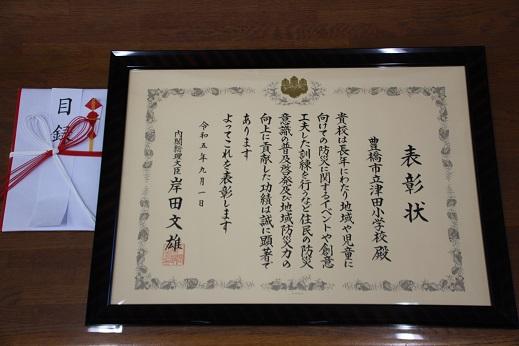 表彰状
豊橋市立津田小学校殿
貴校は長年にわたり地域や児童に
向けての防災に関するイベントや創意
工夫した訓練を行うなど住民の防災
意識の普及啓発及び地域防災力の
向上に貢献した功績は誠に顕著で
あります
よってこれを表彰します
令和五年九月一日
内閣総理大臣 岸田文雄
目録